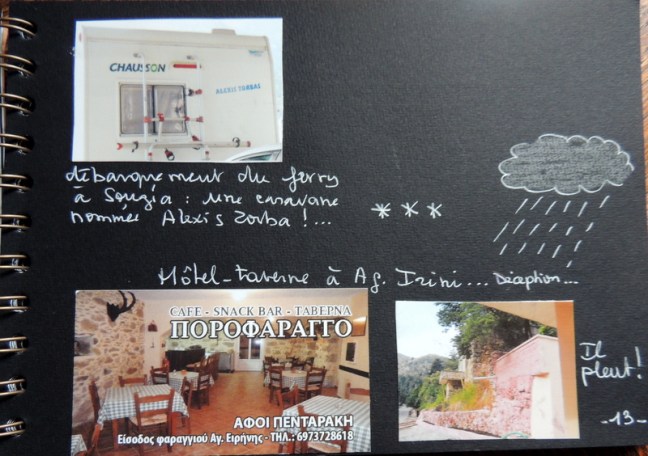 CHAUSSON
ALEXIS ZORBAS
débarquement du ferry
à Sougia : une caravane
nommée Alexis Zorba !...
* * *
Hôtel-taverne à Ag. Irini... Déception...
CAFE - SNACK BAR - TABERNA
ΠΟΡΟΦΑΡΑΓΓΟ
ΑΦΟΙ ΠΕΝΤΑΡΑΚΗ
Είσοδος φαραγγιού Αγ. Ειρήνης - ΤΗΛ.: 6973728618
Il
pleut!
-13-